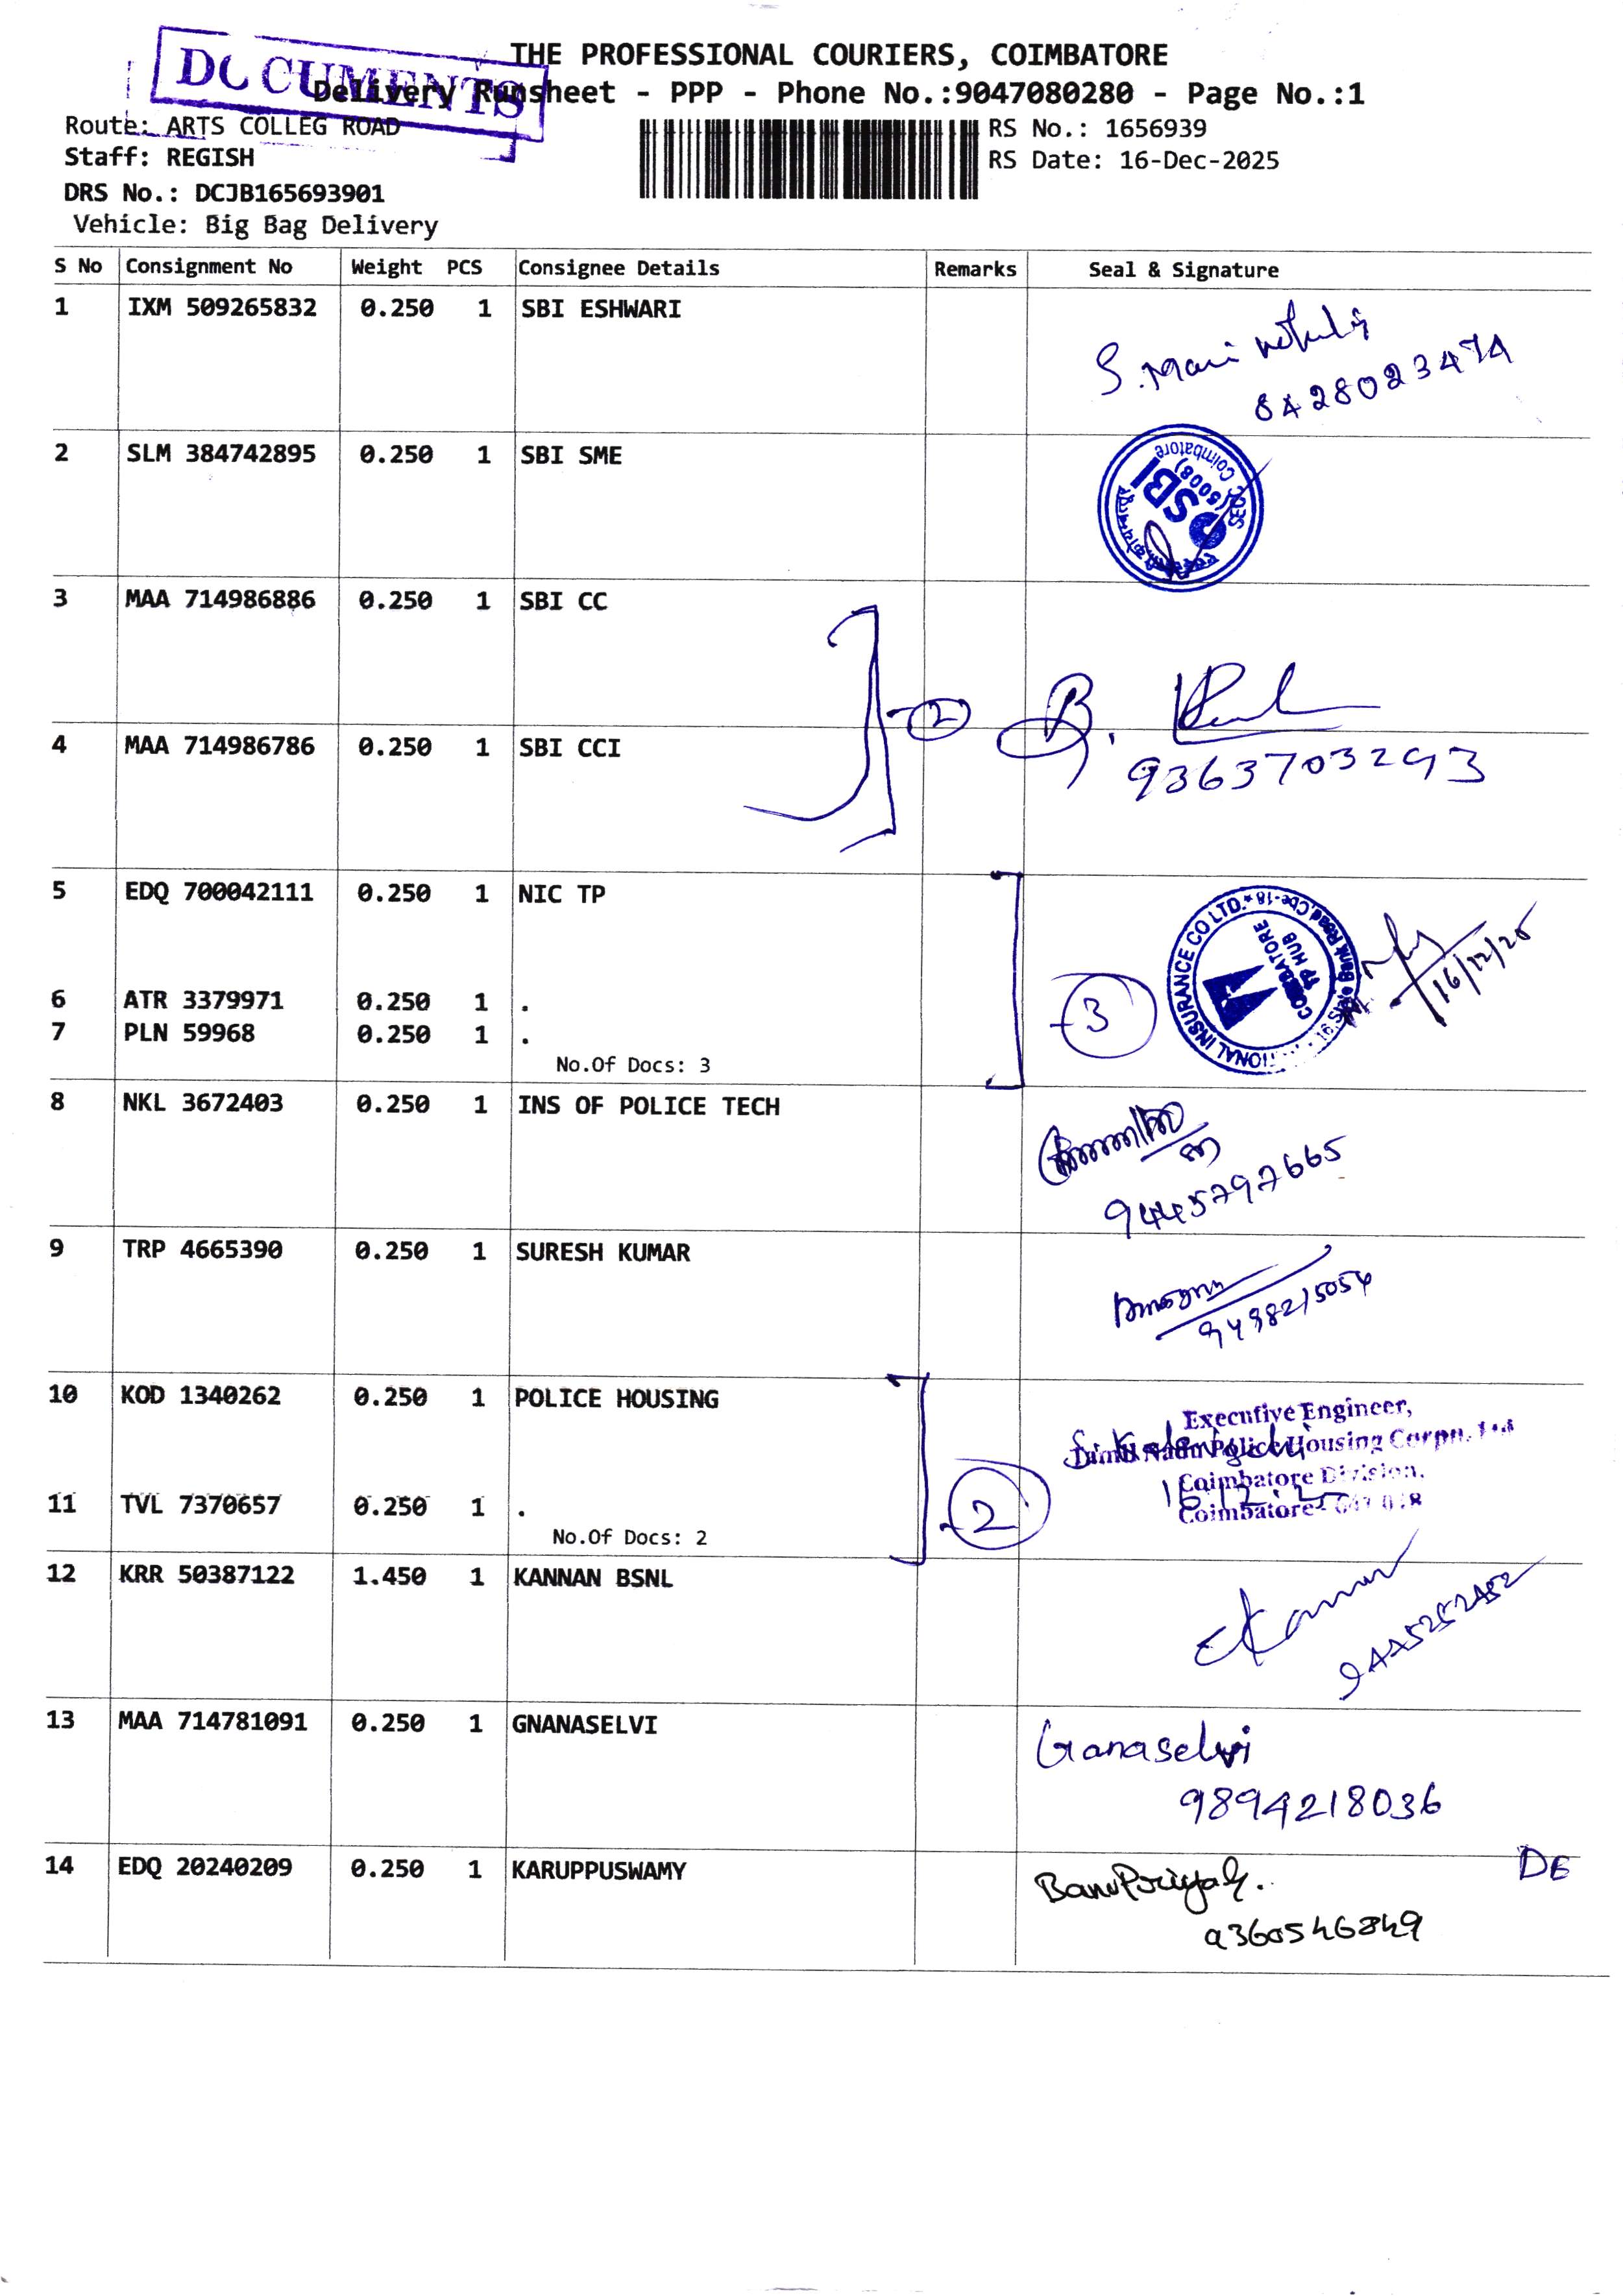 DOCUMENTS
THE PROFESSIONAL COURIERS, COIMBATORE
Delivery Runsheet - PPP - Phone No.:9047080280 - Page No.:1
Route: ARTS COLLEG ROAD
Staff: REGISH
DRS No.: DCJB165693901
Vehicle: Big Bag Delivery
RS No.: 1656939
RS Date: 16-Dec-2025
S No Consignment No Weight PCS Consignee Details Remarks Seal & Signature
1 IXM 509265832 0.250 1 SBI ESHWARI
S. Mari
8428023474
2 SLM 384742895 0.250 1 SBI SME
SBI
Coimbatore
3 MAA 714986886 0.250 1 SBI CC
2
B.
4 MAA 714986786 0.250 1 SBI CCI
9363703293
5 EDQ 700042111 0.250 1 NIC TP
INSURANCE CO LTD.
TP HUB
16/12/25
6 ATR 3379971 0.250 1 .
3
7 PLN 59968 0.250 1 .
No.Of Docs: 3
8 NKL 3672403 0.250 1 INS OF POLICE TECH
9445797665
9 TRP 4665390 0.250 1 SURESH KUMAR
9498215054
10 KOD 1340262 0.250 1 POLICE HOUSING
Executive Engineer,
Tamil Nadu Police Housing Corpn. Ltd
Coimbatore Division,
Coimbatore
11 TVL 7370657 0.250 1 .
2
No.Of Docs: 2
12 KRR 50387122 1.450 1 KANNAN BSNL
9445252452
13 MAA 714781091 0.250 1 GNANASELVI
Gnanaselvi
9894218036
14 EDQ 20240209 0.250 1 KARUPPUSWAMY
DE
BanuPriya
9360546849